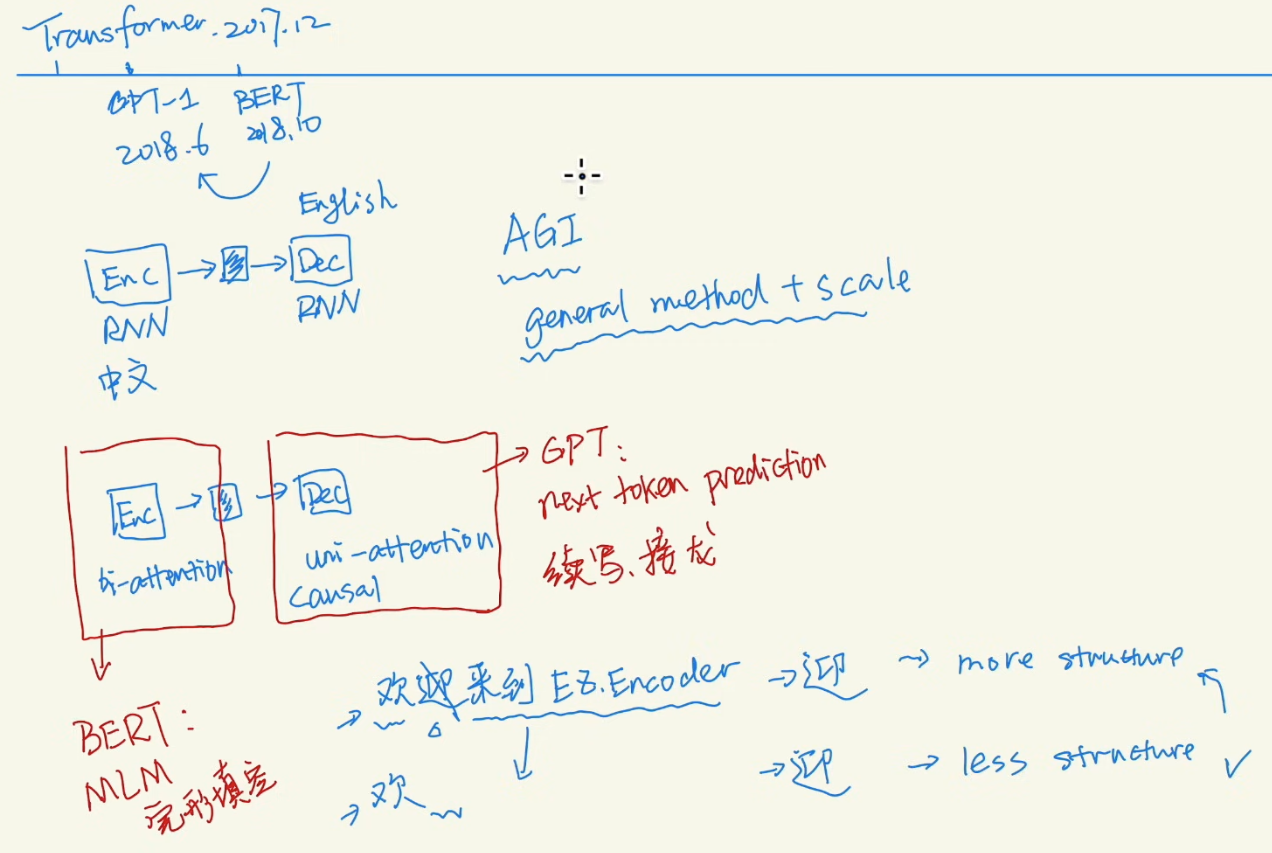 Transformer. 2017.12
GPT-1 BERT
2018.6 2018.10
English
Enc → → Dec
RNN RNN
中文
AGI
general method + scale
Enc → → Dec
bi-attention
uni-attention
causal
→ GPT:
next token prediction
续写、接龙
BERT:
MLM
完形填空
→ 欢迎来到 EZ.Encoder → 迎 → more structure
→ 欢 → 迎 → less structure ✓